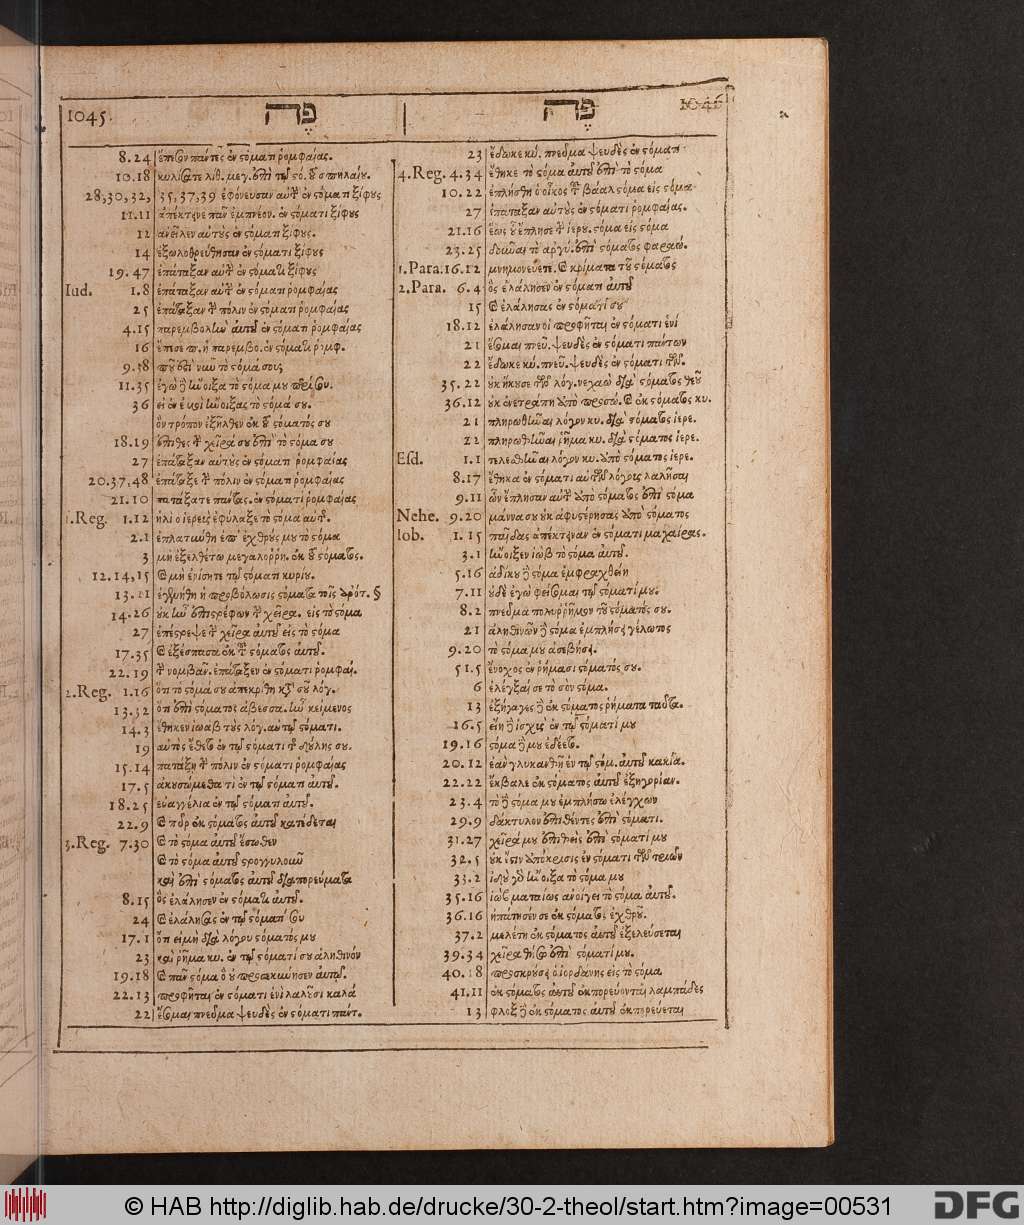 1045
פֶּה
פֶּה
1046
8.24 ἔπεσον πάντες ἐν στόματι ῥομφαίας.
10.18 κυλίσατε λίθ. μεγ. ἐπὶ τῷ στό. τοῦ σπηλαίου.
28,30,32, 35,37,39 ἐφόνευσαν αὐτ ἐν στόματι ξίφους
11.11 ἀπέκτεινε πᾶν ἐμπνέον. ἐν στόματι ξίφους
12 ἀνεῖλεν αὐτοὺς ἐν στόματι ξίφους.
14 ἐξωλόθρευσαν ἐν στόματι ξίφους
19.47 ἐπάταξαν αὐτ ἐν στόματι ξίφους
Iud. 1.8 ἐπάταξαν αὐτ ἐν στόματι ῥομφαίας
25 ἐπάταξαν τὴν πόλιν ἐν στόματι ῥομφαίας
4.15 παρεμβολὴν αὐτοῦ ἐν στόματι ῥομφαίας
16 ἔπεσε π. ἡ παρεμβο. ἐν στόματι ῥομφ.
9.38 ποῦ ἐστὶ νῦν τὸ στόμα σου;
11.35 ἐγὼ ἤνοιξα τὸ στόμα μου
36 εἰ ἐν ἐμοὶ ἤνοιξας τὸ στόμα σου.
ὃν τρόπον ἐξῆλθεν ἐκ τοῦ στόματός σου
18.19 ἐπίθες τὴν χεῖρά σου ἐπὶ τὸ στόμα σου
27 ἐπάταξαν αὐτοὺς ἐν στόματι ῥομφαίας
20.37,48 ἐπάταξε τὴν πόλιν ἐν στόματι ῥομφαίας
21.10 πατάξατε πάντας. ἐν στόματι ῥομφαίας
1.Reg. 1.12 ἠλὶ ὁ ἱερεὺς ἐφύλαξε τὸ στόμα αὐτ.
2.1 ἐπλατύνθη ἐπ ἐχθρούς μου τὸ στόμα
3 μὴ ἐξελθέτω μεγαλορρη. ἐκ τοῦ στόματος.
12.14,15 καὶ μὴ ἐρίσητε τῷ στόματι κυρίου.
14.26 οὐκ ἦν ἐπιστρέφων τὴν χεῖρα. εἰς τὸ στόμα
27 ἐπέστρεψε τὴν χεῖρα αὐτοῦ εἰς τὸ στόμα
17.35 καὶ ἐξέσπασα ἐκ τοῦ στόματος αὐτοῦ.
22.19 τὴν νομβὰν. ἐπάταξεν ἐν στόματι ῥομφαί.
2.Reg. 1.16 ὅτι τὸ στόμα σου ἀπεκρίθη κατὰ σοῦ λέγ.
13.32 ὅτι ἐπὶ στόματος ἀβεσσα. ἦν κείμενος
14.3 ἔθηκεν ἰωὰβ τοὺς λόγ. αὐτῷ στόματι.
19 αὐτὸς ἔθετο ἐν τῷ στόματι τῆς δούλης σου.
15.14 πατάξῃ τὴν πόλιν ἐν στόματι ῥομφαίας
17.5 ἀκουσώμεθα τί ἐν τῷ στόματι αὐτοῦ.
18.25 εὐαγγέλια ἐν τῷ στόματι αὐτοῦ.
22.9 καὶ πῦρ ἐκ στόματος αὐτοῦ κατέδεται
3.Reg. 7.30 καὶ τὸ στόμα αὐτοῦ ἔσωθεν
καὶ τὸ στόμα αὐτοῦ στρογγύλον
καὶ ἐπὶ στόματος αὐτοῦ διαπορεύματα
8.15 ὃς ἐλάλησεν ἐν στόματι αὐτοῦ.
24 καὶ ἐλάλησας ἐν τῷ στόματί σου
17.1 ὅτι εἰ μὴ διὰ λόγου στόματός μου
23 καὶ ῥῆμα κυ. ἐν τῷ στόματί σου ἀληθινόν
19.18 καὶ πᾶν στόμα ὃ οὐ προσεκύνησεν αὐτῷ.
22.13 προφῆται ἐν στόματι ἑνὶ λαλοῦσι καλά
22 ἔσομαι πνεῦμα ψευδὲς ἐν στόματι πάντ.
23 ἔδωκε κύ. πνεῦμα ψευδὲς ἐν στόματι
4.Reg. 4.34 ἔθηκε τὸ στόμα αὐτοῦ ἐπὶ τὸ στόμα
10.22 ἐπλήσθη ὁ οἶκος τοῦ βάαλ στόμα εἰς στόμα
27 ἐπάταξαν αὐτοὺς ἐν στόματι ῥομφαίας.
21.16 ἕως οὗ ἔπλησε τὴν ἱερου. στόμα εἰς στόμα
23.25 δοῦναι τὸ ἀργύ. ἐπὶ στόματος φαραώ.
1.Para. 16.12 μνημονεύετε. καὶ κρίματα τοῦ στόματος
2.Para. 6.4 ὃς ἐλάλησεν ἐν στόματι αὐτοῦ
15 καὶ ἐλάλησας ἐν στόματί σου
18.12 ἐλάλησαν οἱ προφῆται ἐν στόματι ἑνί
21 ἔσομαι πνεῦ. ψευδὲς ἐν στόματι πάντων
22 ἔδωκε κύ. πνεῦ. ψευδὲς ἐν στόματι τῶν.
35.22 οὐκ ἤκουσε τῶν λόγ. νεχαὼ διὰ στόματος θεοῦ
36.12 οὐκ ἐνετράπη ἀπὸ προσώ. καὶ ἐκ στόματος κυ.
21 πληρωθῆναι λόγον κυ. διὰ στόματος ἱερε.
22 πληρωθῆναι ῥῆμα κυ. διὰ στόματος ἱερε.
Esd. 1.1 τελεσθῆναι λόγον κυ. ἀπὸ στόματος ἱερε.
8.17 ἔθηκα ἐν στόματι αὐτῶν λόγους λαλῆσαι
9.11 ὧν ἔπλησαν αὐτ ἀπὸ στόματος ἐπὶ στόμα
Nehe. 9.20 μάννα σου οὐκ ἀφυστέρησας ἀπὸ στόματος
Iob. 1.15 παῖδας ἀπέκτειναν ἐν στόματι μαχαίρας.
3.1 ἤνοιξεν ἰὼβ τὸ στόμα αὐτοῦ.
5.16 ἀδίκου δὲ στόμα ἐμφραχθείη
7.11 οὐδὲ ἐγὼ φείσομαι τῷ στόματί μου.
8.2 πνεῦμα πολυρρῆμον τοῦ στόματός σου.
21 ἀληθινῶν δὲ στόμα ἐμπλήσει γέλωτος
9.20 τὸ στόμα μου ἀσεβήσει.
51.5 ἔνοχος ἐν ῥήμασι στόματός σου.
6 ἐλέγξαι σε τὸ σὸν στόμα.
13 ἐξήγαγες δὲ ἐκ στόματος ῥήματα ταῦτα.
16.5 εἴη δὲ ἰσχὺς ἐν τῷ στόματί μου
19.16 στόμα δέ μου ἐδέετο.
20.12 ἐὰν γλυκανθῇ ἐν τῷ στόμ. αὐτοῦ κακία.
22.22 ἔκβαλε ἐκ στόματος αὐτοῦ ἐξηγορίαν.
23.4 τὸ δὲ στόμα μου ἐμπλήσω ἐλέγχων
29.9 δάκτυλον ἐπιθέντες ἐπὶ στόματι.
31.27 χεῖρά μου ἐπιθεὶς ἐπὶ στόματί μου
32.5 οὐκ ἔστιν ἀπόκρισις ἐν στόματι τῶν τριῶν
33.2 ἰδοὺ γὰρ ἤνοιξα τὸ στόμα μου
35.16 ἰὼβ ματαίως ἀνοίγει τὸ στόμα αὐτοῦ.
36.16 ἠπάτησέν σε ἐκ στόματος ἐχθροῦ.
37.2 μελέτη ἐκ στόματος αὐτοῦ ἐξελεύσεται
39.34 χεῖρα θήσω ἐπὶ στόματί μου.
40.18 προσκρούσει ὁ ἰορδάνης εἰς τὸ στόμα
41.11 ἐκ στόματος αὐτοῦ ἐκπορεύονται λαμπάδες
13 φλὸξ δὲ ἐκ στόματος αὐτοῦ ἐκπορεύεται
© HAB http://diglib.hab.de/drucke/30-2-theol/start.htm?image=00531
DFG